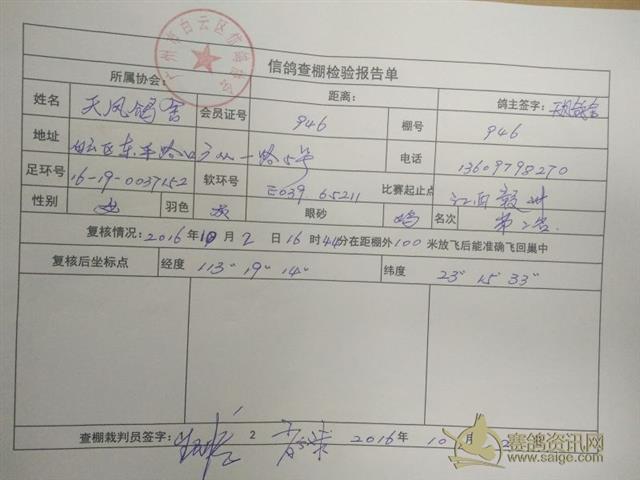 信鸽查棚检验报告单
所属协会: 距离: 鸽主签字:
姓名 天凤鸽舍 会员证号 946 棚号 946
地址 电话 13609798270
足环号 16-19-0037152 软环号 E039 65211 比赛起止点 江西赣州
性别 羽色 灰 眼砂 鸡 名次 第2名
复核情况: 2016年10月2日16时44分在距棚外100米放飞后能准确飞回巢中
复核后坐标点 经度 113° 19" 14" 纬度 23° 15' 33"
查棚裁判员签字: 2 2016年10月2
赛鸽资讯网
www.saige.com